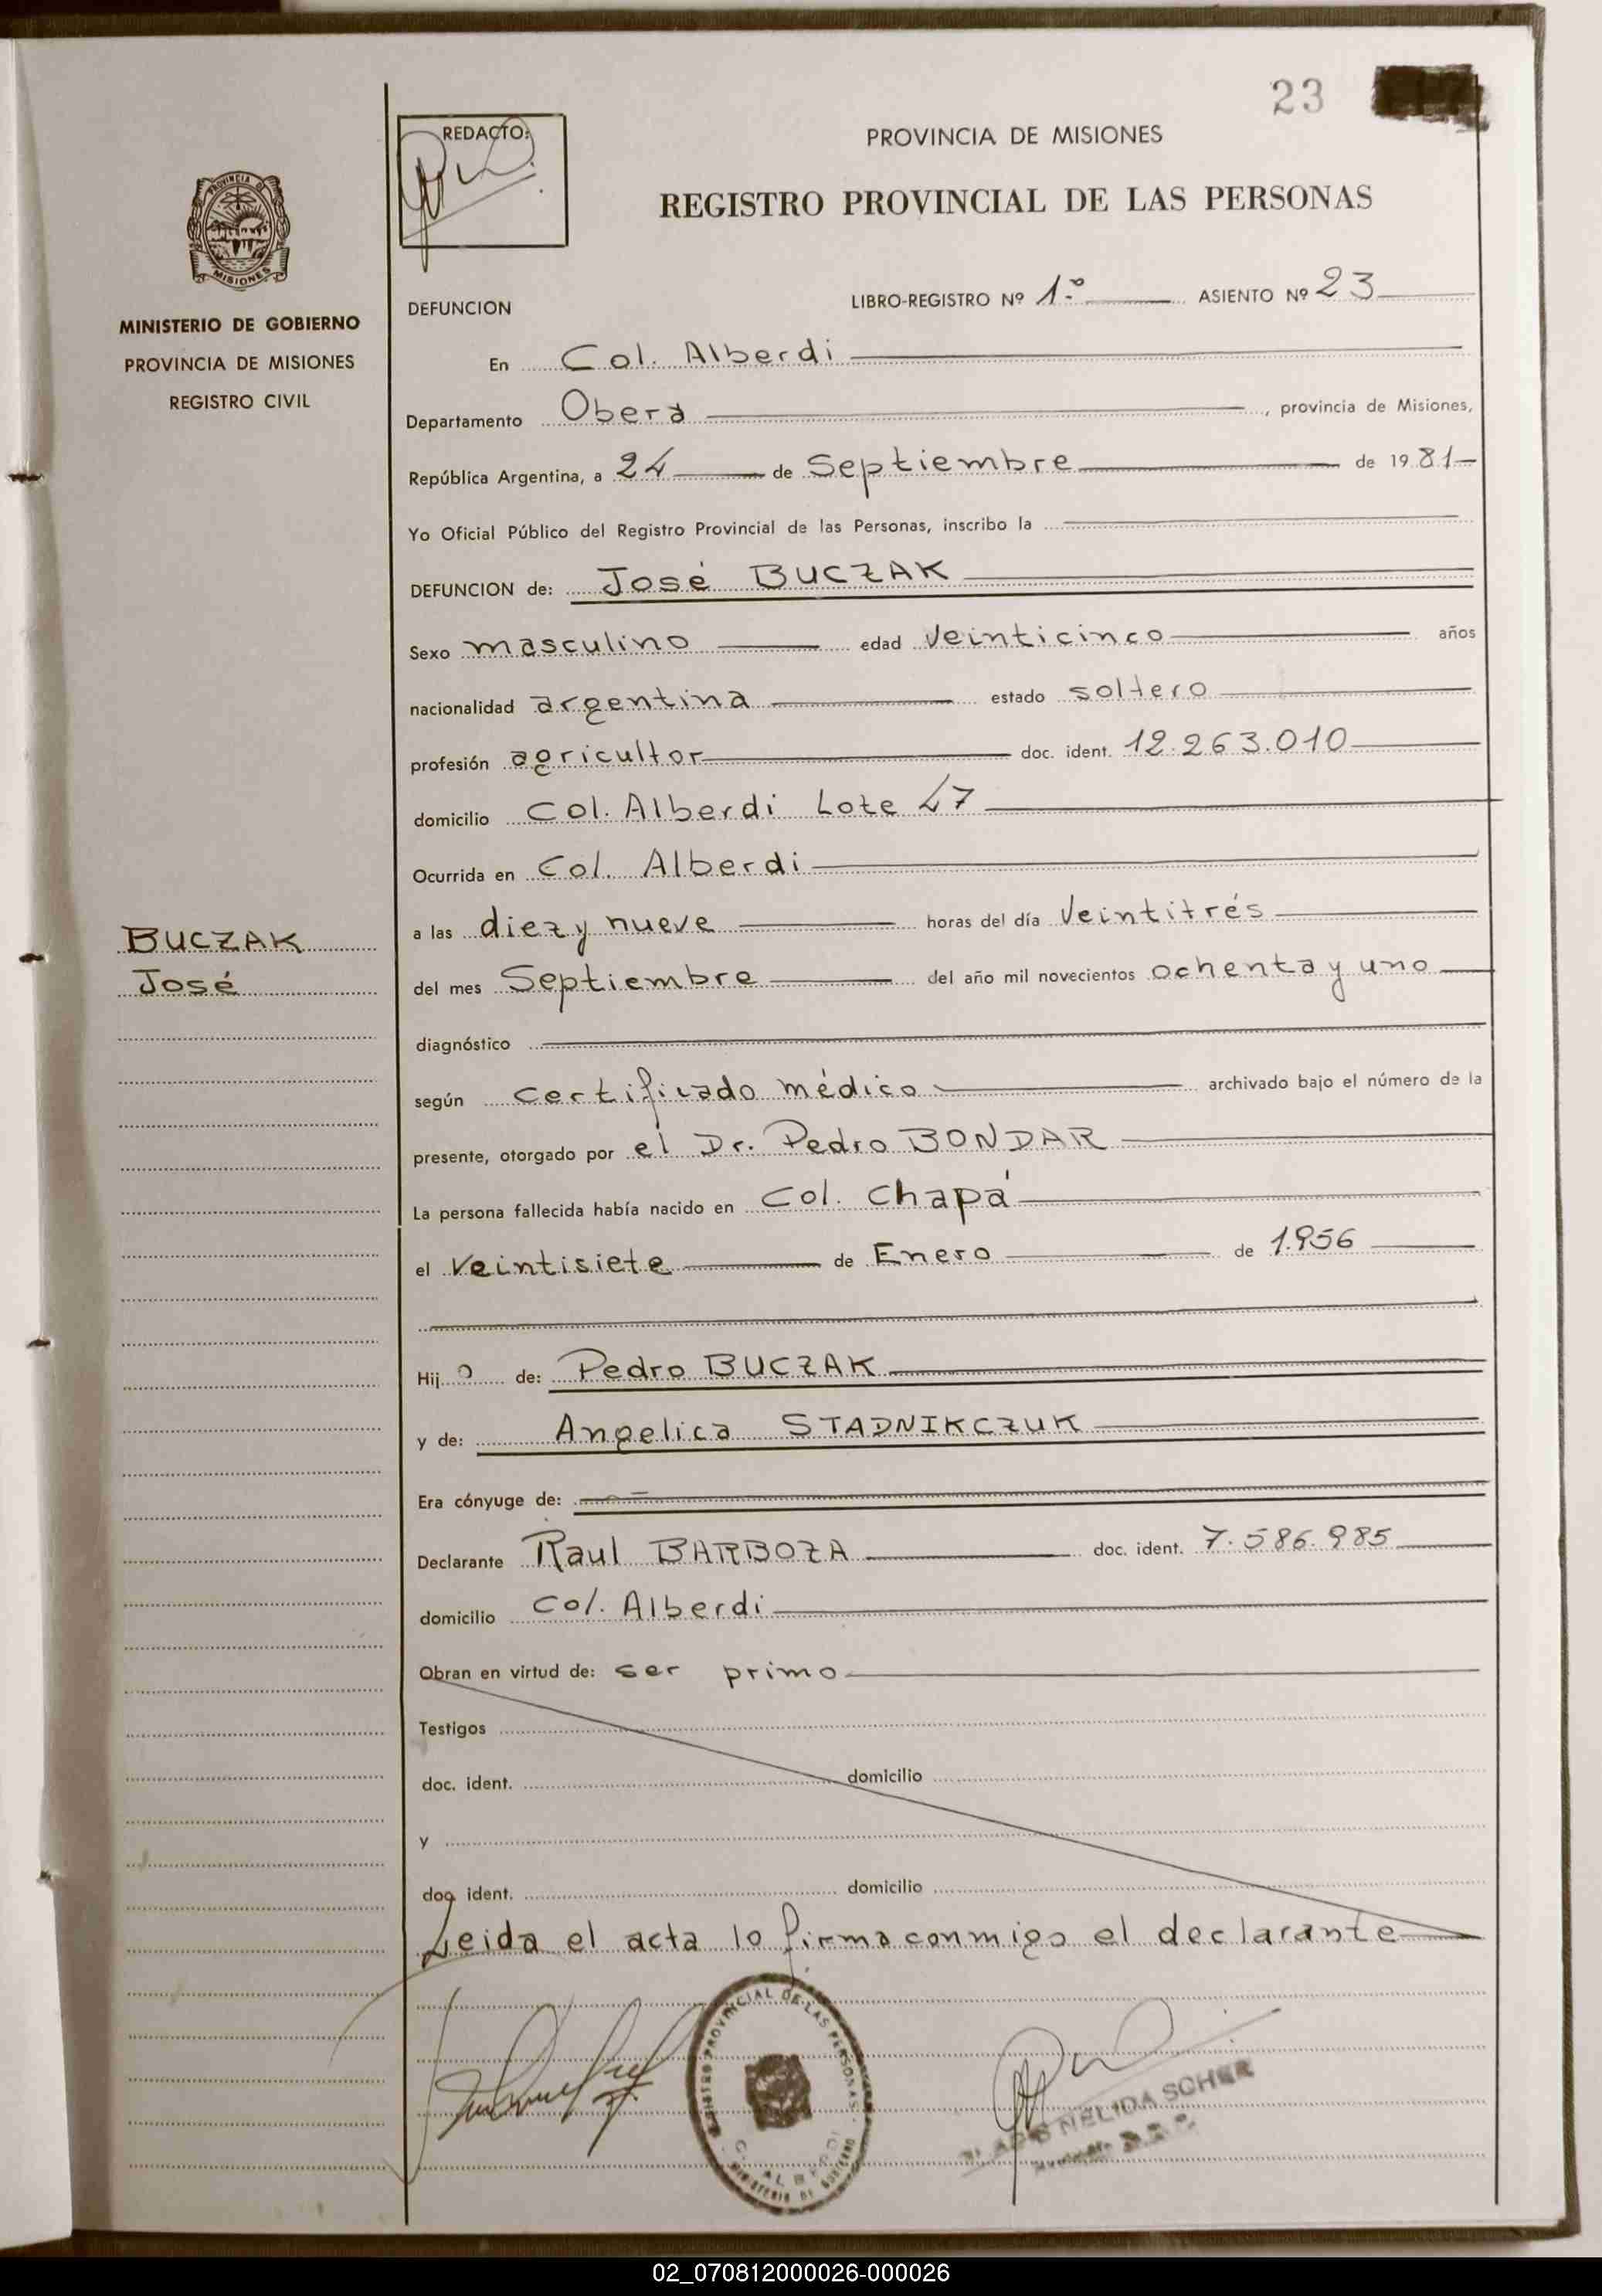 23
REDACTO:
PROVINCIA DE MISIONES
REGISTRO PROVINCIAL DE LAS PERSONAS
PROVINCIA D
MISIONES
MINISTERIO DE GOBIERNO
PROVINCIA DE MISIONES
REGISTRO CIVIL
DEFUNCION LIBRO-REGISTRO Nº 1º ASIENTO Nº 23
En Col. Alberdi
Departamento Oberá, provincia de Misiones,
República Argentina, a 24 de Septiembre de 1981
Yo Oficial Público del Registro Provincial de las Personas, inscribo la
DEFUNCION de: José BUCZAK
Sexo masculino edad veinticinco años
nacionalidad argentina estado soltero
profesión agricultor doc. ident. 12.263.010
domicilio Col. Alberdi Lote 47
Ocurrida en Col. Alberdi
a las diez y nueve horas del día Veintitrés
del mes Septiembre del año mil novecientos ochenta y uno
BUCZAK
José
diagnóstico
según certificado médico archivado bajo el número de la
presente, otorgado por el Dr. Pedro BONDAR
La persona fallecida había nacido en Col. Chapá
el Veintisiete de Enero de 1.956
Hijo de: Pedro BUCZAK
y de: Angelica STADNIKCZUK
Era cónyuge de:
Declarante Raul BARBOZA doc. ident. 7.586.985
domicilio Col. Alberdi
Obran en virtud de: ser primo
Testigos
doc. ident. domicilio
y
doc. ident. domicilio
Leida el acta lo firma conmigo el declarante
REGISTRO PROVINCIAL DE LAS PERSONAS
ALBERDI
MINISTERIO DE GOBIERNO
NELIDA SCHER
02_070812000026-000026